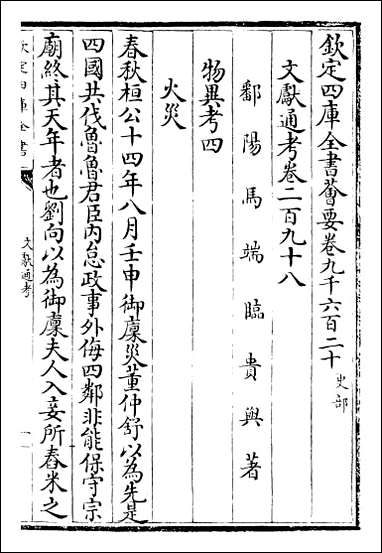 欽定四庫全書薈要卷九千六百二十 史部
文獻通考卷二百九十八
鄱陽馬端臨貴與著
物異考四
火災
春秋桓公十四年八月壬申御廩災董仲舒以為先是
四國共伐魯魯君臣内怠政事外侮四鄰非能保守宗
廟終其天年者也劉向以為御廩夫人八妾所舂米之
欽定四庫全書
文獻通考
一